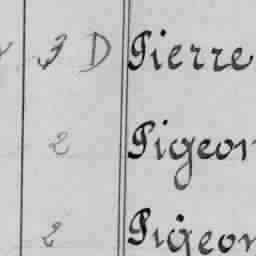 3 D Pierre
2 Pigeon
2 Pigeon